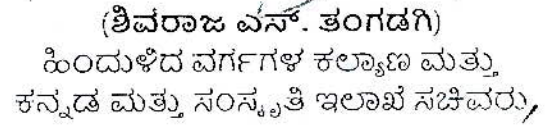 (ಶಿವರಾಜ ಎಸ್. ತಂಗಡಗಿ)
ಹಿಂದುಳಿದ ವರ್ಗಗಳ ಕಲ್ಯಾಣ ಮತ್ತು
ಕನ್ನಡ ಮತ್ತು ಸಂಸ್ಕೃತಿ ಇಲಾಖೆ ಸಚಿವರು,